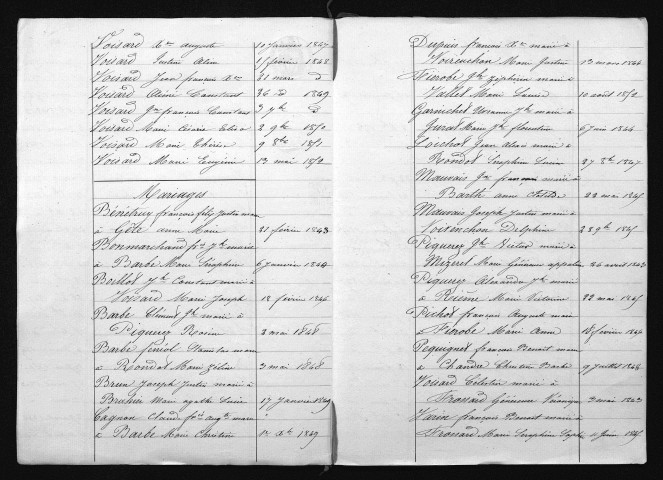 Voisard Xer auguste 10 janvier 1847
Voisard Justin Alin 1 février 1848
Voisard Jean francois Xer 31 mars d°
Voisard Alin Constant 26 d° 1849
Voisard Jn francois Constant 3 7bre d°
Voisard Marie Cesarie Elisa 2 9bre 1850
Voisard Marie Thérèse 9 8bre 1851
Voisard Marie Eugénie 13 mai 1852
Mariages
Bénétruy françois félix Justin marié
à Gête anne Marie 21 février 1843
Monmarchand fs Jh marié
à Barbe Marie Séraphine 6 janvier 1844
Boillot Jh Constant marié à
Voisard Marie Joseph 18 février 1846
Barbe Clément Jh marié à
Piquerey Rosine 2 mai 1848
Barbe Fériol Stanislas marié
à Rondot Marie Zéline 3 mai 1848
Brun Joseph Justin marié à
Bruhin Marie agathe Lucie 17 janvier 1849
Cagnon Claude fois aug marié
à Barbe Marie Christine 18 Xbre 1849
Dupuis francois Xer marié à
Voisinchon Marie Justine 13 mars 1844
Fierobe Jh Zéphirin marié à
Vallet Marie Louise 10 août 1852
Garnichet Jh marié à
Jurat Marie Jh florentine 6 juin 1844
Loichot Jean Alexis marié à
Rondot Séraphine Lucie 27 8bre 1847
Mauvais Jn francois marié à
Barth anne Clotilde 22 mai 1845
Mauvais Joseph Justin marié à
Voisinchon Delphine 28 9bre 1845
Piquerey Jh Victor marié à
Mizeret Marie Géneviève appoline 26 avril 1843
Piquerey Alexandre Jh marié
à Reume Marie Victoire 22 mai 1845
Pichot françois August marié
à Fierobe Marie Anne 18 février 1844
Pequignot françois Benoit marié
à Chandre Christine Barbe 9 juillet 1848
Voisard Célestin marié à
Froidard Géneviève Véronique 3 mai 1843
Verin françois Benoit marié à
Froidard Marie Séraphine Sophie 11 juin 1845